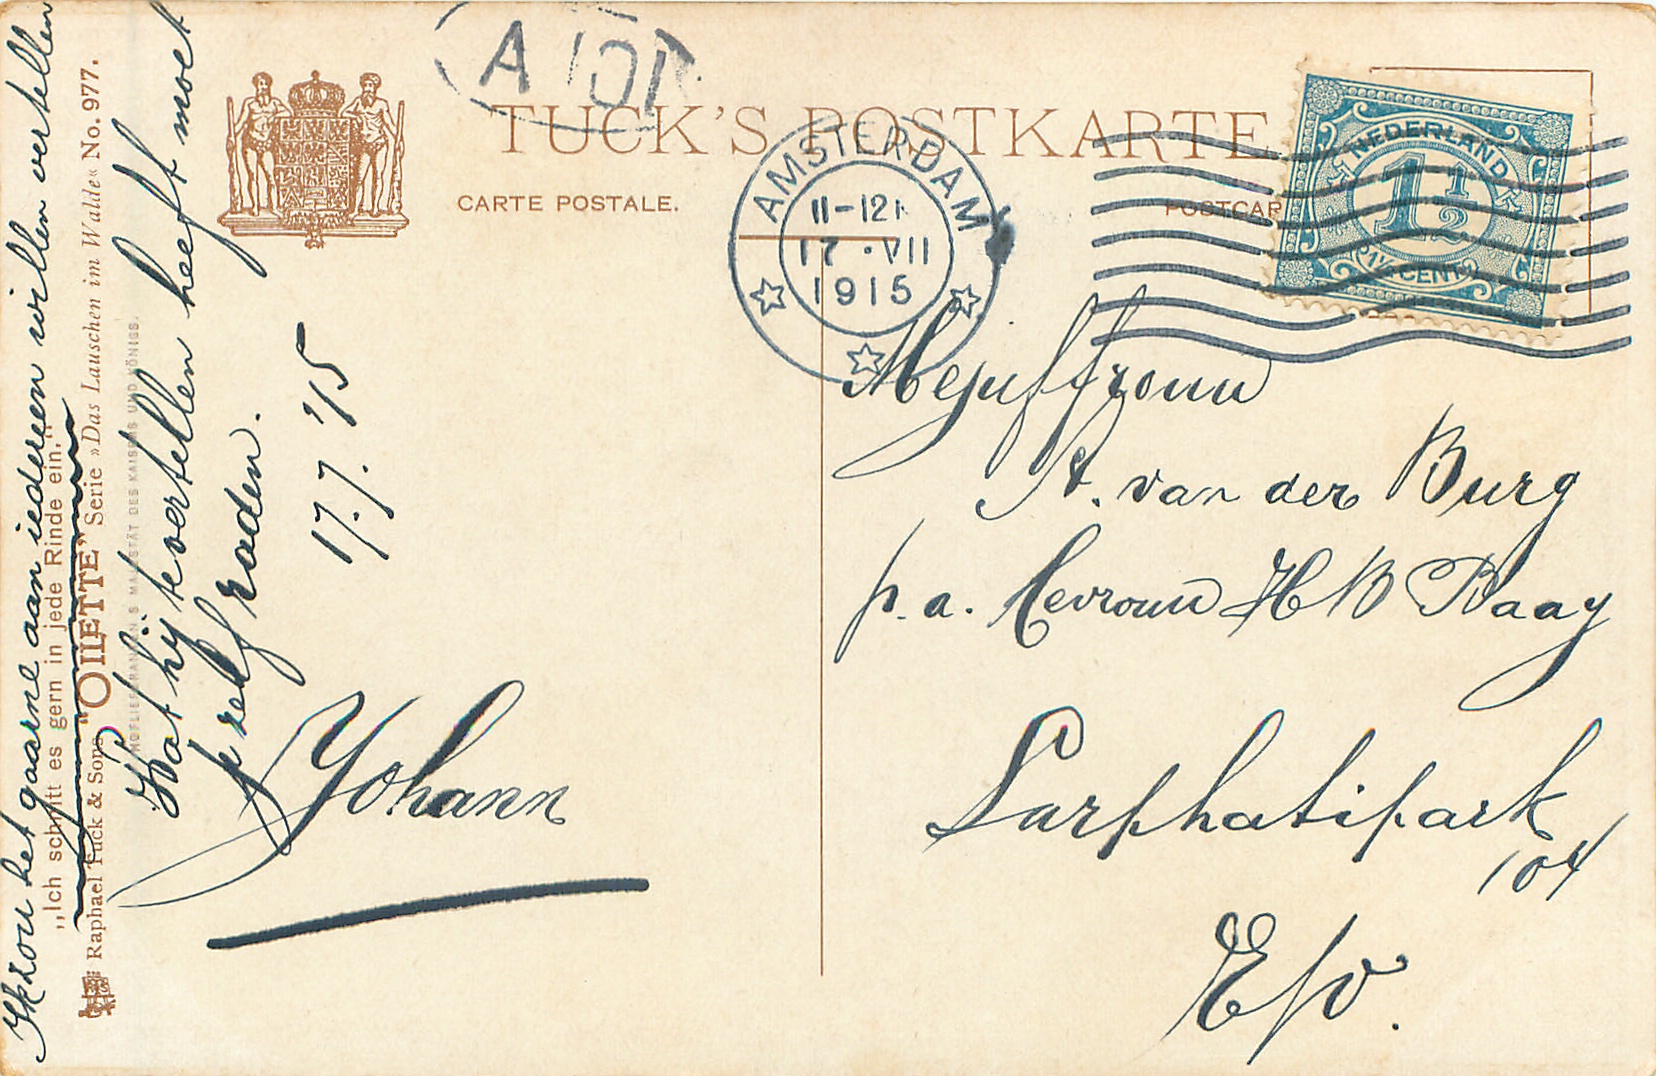 A 101
TUCK'S POSTKARTE
CARTE POSTALE.
POSTCAR
AMSTERDAM
11-12
17 · VII
1915
NEDERLAND
1½
1½ CENT
Mejuffrouw
A. van der Burg
p.a. Mevrouw H B Baay
Sarphatipark
104
E/v.
Ik zou het gaarne aan iedereen willen vertellen
„Ich schnitt es gern in jede Rinde ein."
Raphael Tuck & Sons "OILETTE" Serie »Das Lauschen im Walde« No. 977.
HOFLIEFERANTEN S MAJESTÄT DES KAISERS UND KÖNIGS.
Wat hij te vertellen heeft moet
je zelf raden.
17.7.'15
Johann